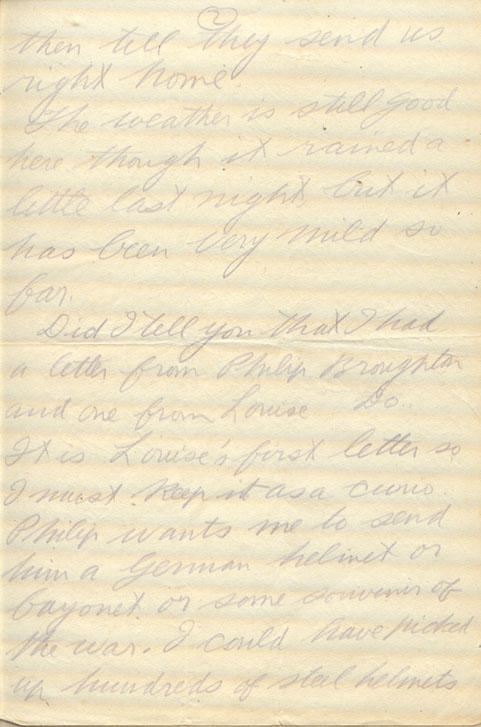 (2)
then till they send us
right home.
The weather is still good
here though it rained a
little last night, but it
has been very mild so
far.
Did I tell you that I had
a letter from Philip Broughton
and one from Louise Do.
It is Louise's first letter so
I must keep it as a curio.
Philip wants me to send
him a German helmet or
bayonet or some souvenir of
the war. I could have picked
up hundreds of steel helmets